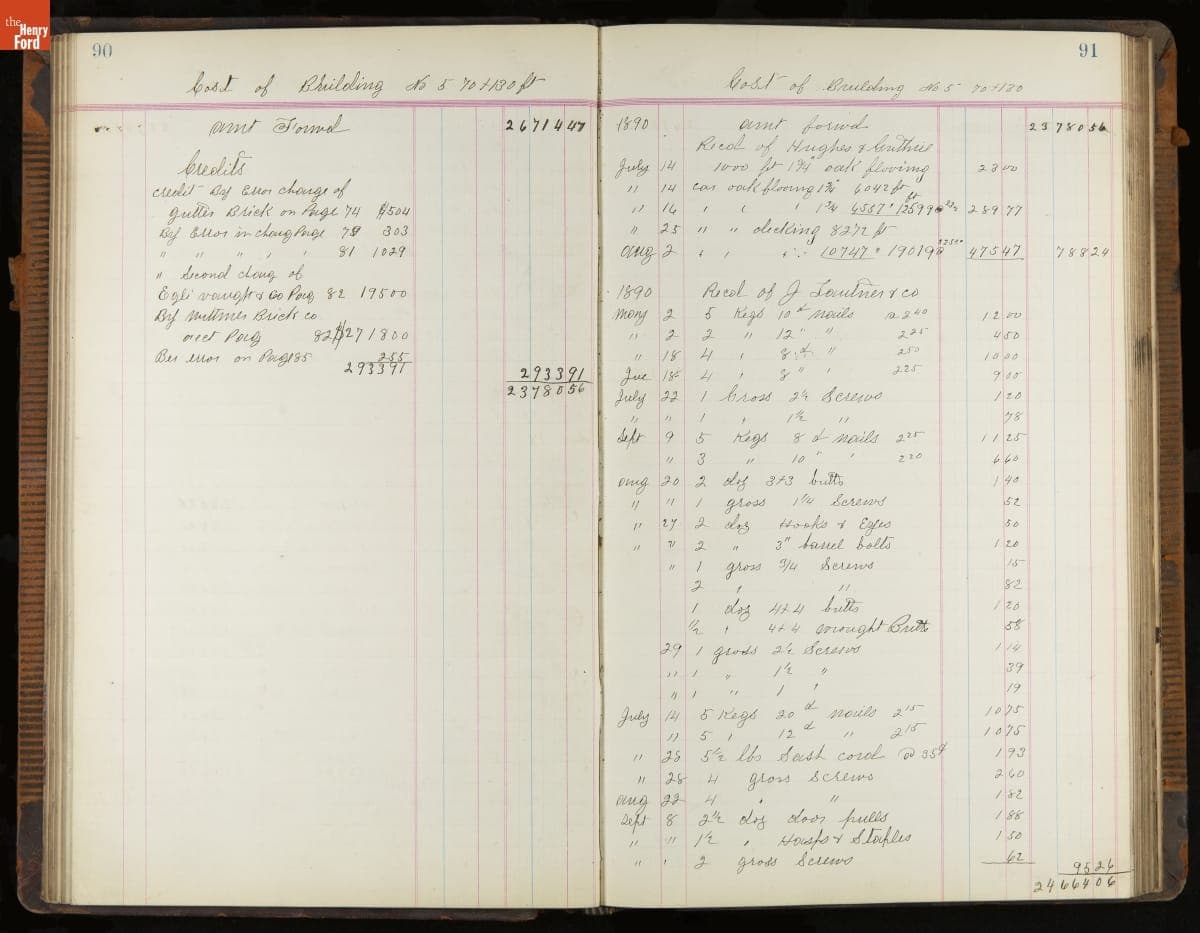 the
Henry
Ford
90
Cost of Building No 5 70+130 ft
amt Forwd 26714 47
Credits
credit By Error charge of
gutter Brick on Page 74 $504
By Error in charg Page 79 303
" " " " " 81 1029
" Second charg of
Egli vaught & Co Pag 82 19500
By Wittmer Brick co
acct Pag 82 $271800
Ber error on Page 85 255
293391
2933 91
23780 56
91
Cost of Building No 5 70+130
1890 amt forwd 23780 56
Recd of Hughes & Guthrie
July 14 1000 ft 1¾ oak flooring 23 00
" 14 car oak flooring 1¾ 6042 ft
" 16 " " " 1¾ 6557 " 12599 ft 289 77
" 25 " " decking 8272 ft
aug 2 " " " " 10747 " 19019 475 47 788 24
1890 Recd of J Lautner & co
May 2 5 Kegs 10 d nails a 2 40 12 00
" 2 2 " 12 " " 2 25 4 50
" 18 4 " 8 d " 2 50 10 00
Jue 18 4 " 8 " " 2 25 9 00
July 22 1 Gross 2½ Screws 1 20
" " 1 " 1½ " 78
Sept 9 5 Kegs 8 d nails 2 25 11 25
" 3 " 10 " " 2 20 6 60
aug 20 2 doz 3+3 butts 1 40
" " 1 gross 1¼ Screws 52
" 27 2 doz Hooks & Eyes 50
" " 2 " 3" barrel bolts 1 20
" 1 gross ¾ Screws 15
2 " " 82
1 doz 4+4 butts 1 20
½ " 4+4 wrought Butts 58
29 1 gross 2½ Screws 1 14
" 1 " 1½ " 39
" 1 " 1 " 19
July 14 5 Kegs 20 d nails 2 15 10 75
" 5 " 12 d " 2 15 10 75
" 28 5½ lbs Sash cord @ 35¢ 1 93
" 28 4 gross Screws 2 60
aug 22 4 " " 1 82
Sept 8 2½ doz door pulls 1 88
" " 1½ " Hasps & Staples 1 50
" " 2 gross Screws 62
95 26
24664 06